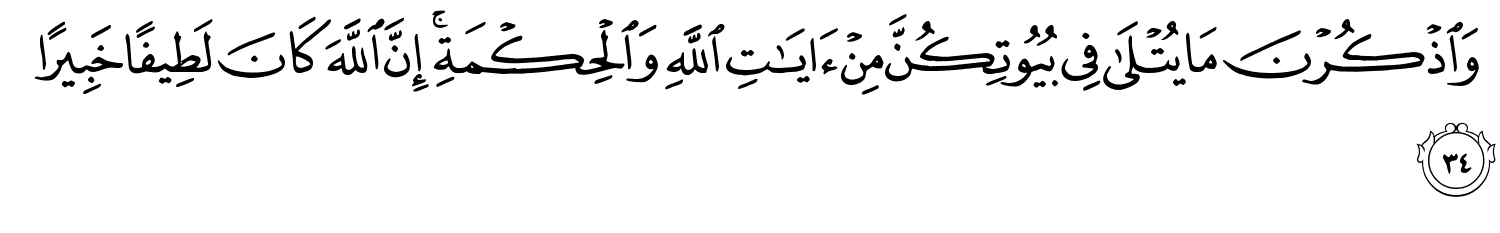 وَٱذْكُرْنَ مَا يُتْلَىٰ فِى بُيُوتِكُنَّ مِنْ ءَايَـٰتِ ٱللَّهِ وَٱلْحِكْمَةِ ۚ إِنَّ ٱللَّهَ كَانَ لَطِيفًا خَبِيرًا
٣٤